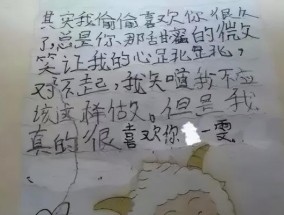 其实我偷偷喜欢你很久
了,总是你那甜蜜的微
笑让我的心乱乱,
对不起,我知道我不应
该这样做。但是我
真的很喜欢你 一雯